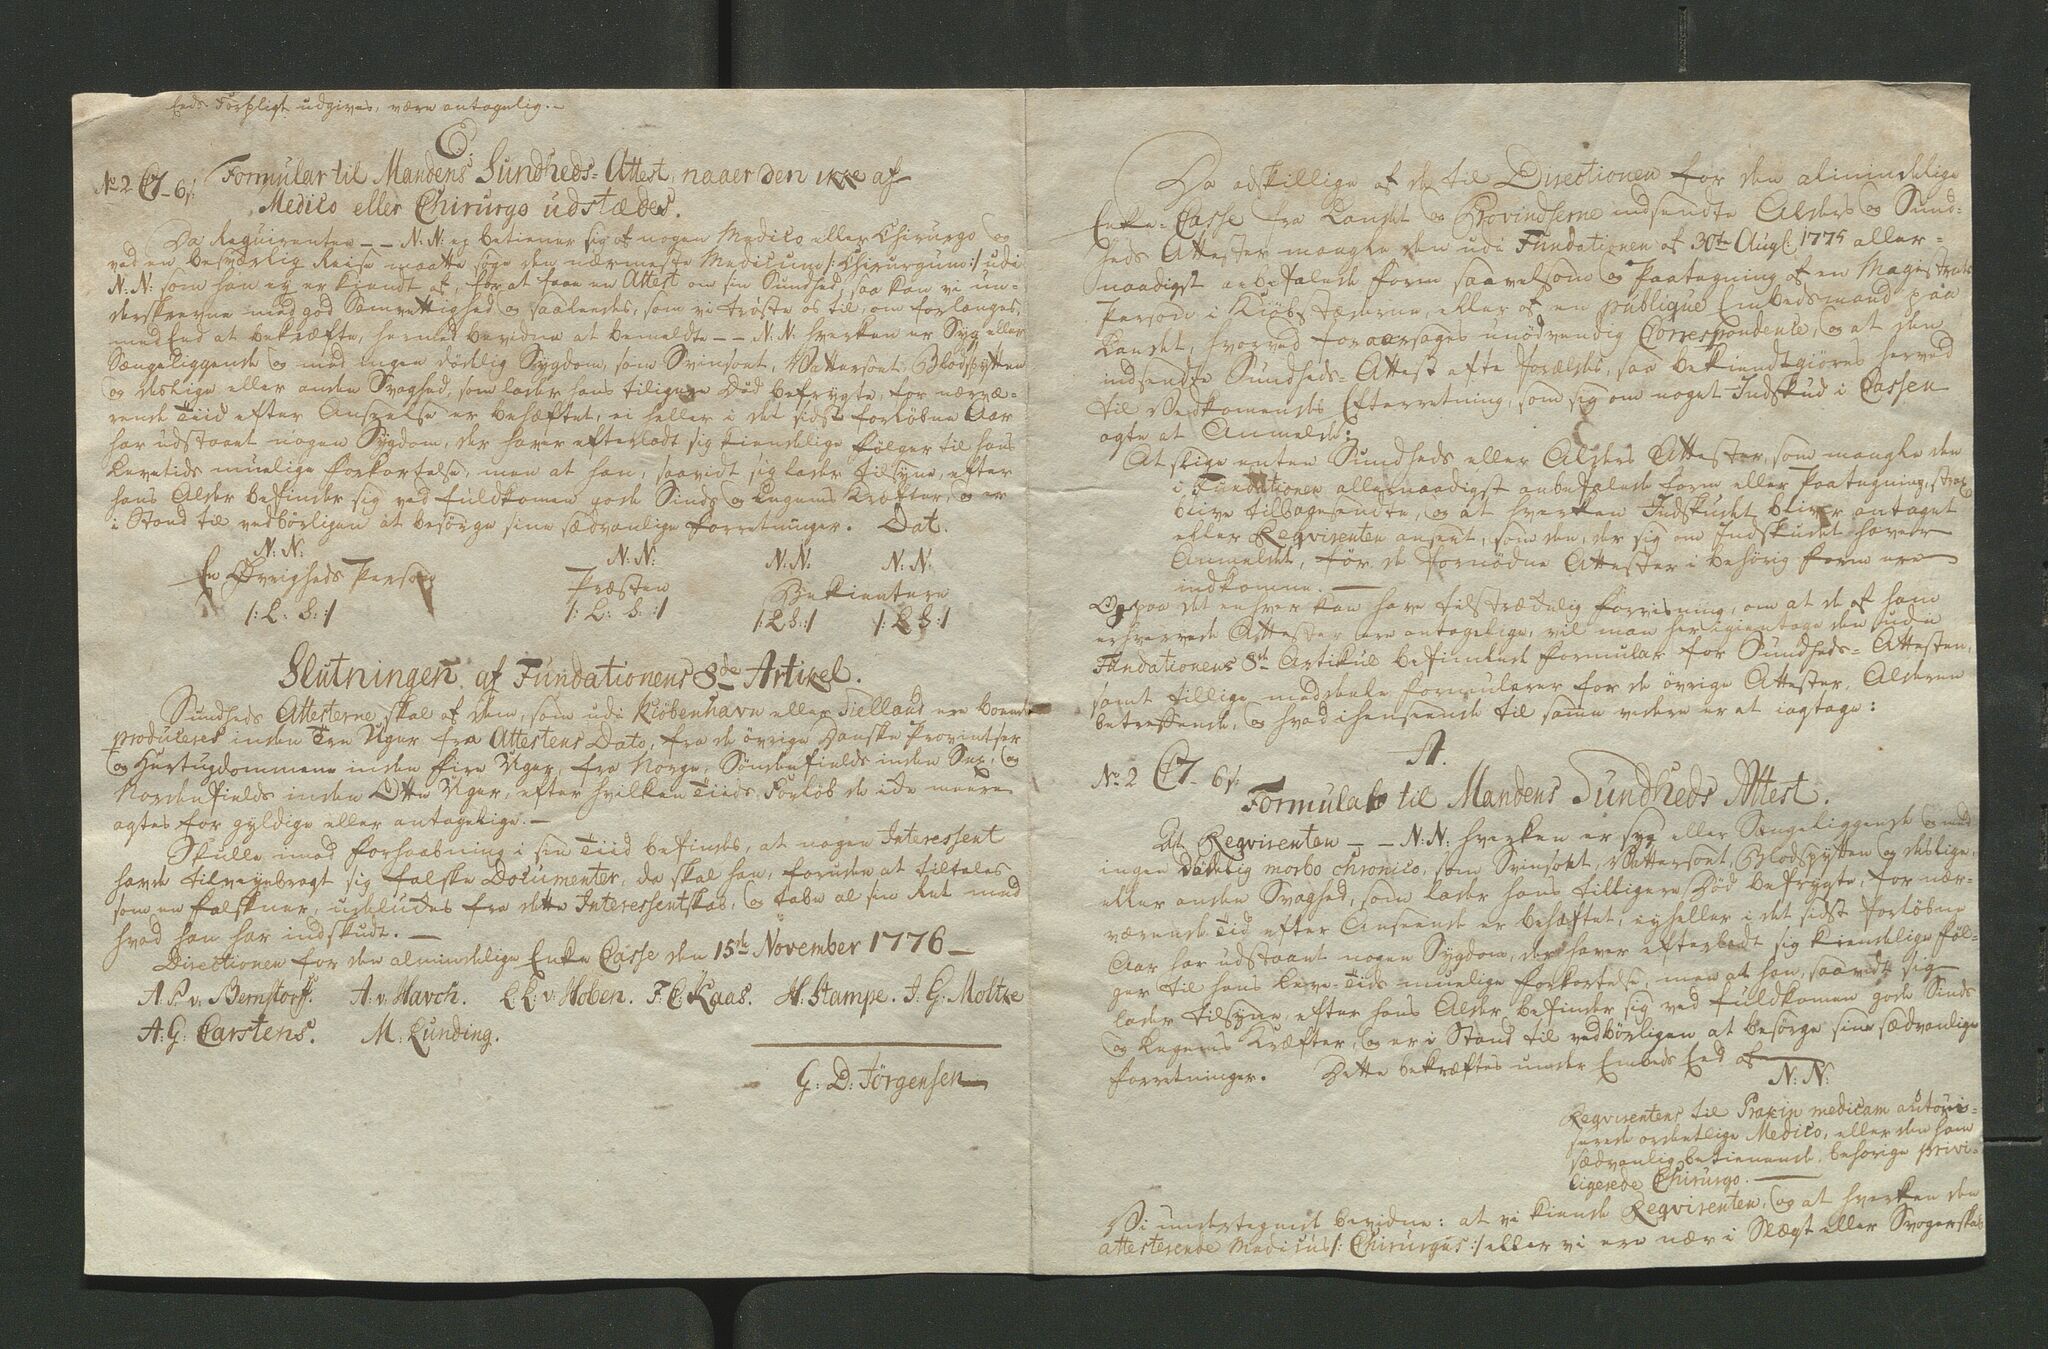 Eeds Forpligt udgives, være antagelig.
C.
No 2 C7 - 6 s:
Formular til Mandens Sundheds-Attest, naaer den ikke af
Medico eller Chirurgo udstædes.
Da Requirenten - - N: N: ej betiener sig af nogen Medico eller Chirurgo og
ved en besværlig Reise maatte søge den nærmeste Medicum /: Chirurgum :/ udi
N: N: som han ey er kiendt af, for at faae en Attest om sin Sundhed, saa kan vi un-
derskrevne med god Samvittighed og saaledes, som vi trøste os til, om forlanges,
med Eed at bekræfte, hermed bevidne at bemeldte - - N: N: hverken er Syg eller
Sængeliggende og med ingen dødelig Sygdom, som Svinsot, Vattersot, Blodspytten
og deslige eller anden Svaghed, som lader hans tiligere Død befrygte, for nærvæ-
rende Tiid efter Anseelse er behæftet, ei heller i det sidst forløbne Aar
har udstaaet nogen Sygdom, der haver efterladt sig kiendelige følger til hans
Levetids muelige forkortelse, men at han, saavidt sig lader tilsyne, efter
hans Alder befinder sig ved fuldkomen gode Sinds og Legems Kræfter, og er
i Stand til vedbørligen at besørge sine sædvanlige forretninger. Dat.
N: N: N: N: N: N: N: N:
En Øvrigheds Person Præsten Bekientere
/: L: S: :/ /: L: S: :/ /: L S: :/ /: L S: :/
Slutningen af Fundationens 8de Artikel.
Sundheds Attesterne skal af dem, som udi Kiøbenhavn eller Siellands ere boende
produceres inden Tre Uger fra Attestens Dato, fra de øvrige Danske Provintser
og Hertugdommene inden fire Uger, fra Norge, Søndenfields inden Sex, og
Nordenfields inden Otte Uger, efter hvilken Tiids Forløb de icke meere
agtes for gyldige eller antagelige. -
Skulle mod forhaabning i sin Tiid befindes, at nogen Interessent
havde tilveyebragt sig falske Documenter, da skal han, foruden at tiltales
som en falskner, udeludes fra dette Interessentskab, og tabe al sin Ret med
hvad han har indskudt. -
Directionen for den almindelige Enke Casse den 15de November 1776 -
A. P. v. Bernstorff. A: v: Havch. L. L. v: Hoben. F: C: Kaas. H. Stampe. J. G. Moltke
A: G: Carstens. M. Lunding.
G: D: Jørgensen
Da adskillige af de til Directionen for den almindelige
Enke-Casse fra Landet og Provindserne indsendte Alders og Sund-
heds Attester mangle den udi Fundationen af 30te Aug: 1775 aller-
naadigst anbefalede form saavelsom og Paategning af en Magistrats
Person i Kiøbstæderne, eller af en publique Embedsmand paa
Landet, hvorved foraarsages unødvendig Correspondence, og at den
indsendte Sundheds-Attest ofte forældes, saa bekiendtgiøres herved
til Vedkomendes Efterretning, som sig om noget Indskud i Cassen
agte at Anmelde:
At slige enten Sundheds eller Alders Attester, som mangle den
i Fundationen allernaadigst anbefalede form eller Paategning, strax
blive tilbagesendte, og at hverken Indskudet bliver antaget
eller Reqvirenten anseet, som den, der sig om Indskudet haver
Anmeldet, før de fornødne Attester i behørig form ere
indkomne. -
Og paa det enhver kan have tilstrækkelig forvisning, om at de af ham
erhvervede Attester ere antagelige, vil man her igientage den udi
Fundationens 8de Artikul befindtlede formular for Sundheds-Attesten,
samt tillige meddeele formularer for de øvrige Attester, Alderen
betreffende, og hvad i henseende til samme videre er at iagtage:
A.
No 2 C7 - 6 s:
Formular til Mandens Sundheds Attest.
At Reqvirenten - - N: N: hverken er syg eller Sængeliggende og med
ingen dødelig morbo chronico, som Svinsot, Vattersot, Blodspytten og deslige,
eller anden Svaghed, som lader hans tilligere Død befrygte, for nær-
værende Tid efter Anseende er behæftet, ey heller i det sidst forløbne
Aar har udstaaet nogen Sygdom, der haver efterladt sig kiendelige føl-
ger til hans Leve-Tids muelige forkortelse, men at han, saavidt sig
lader tilsyne, efter hans Alder befinder sig ved fuldkomen gode Sinds
og Legems Kræfter, og er i Stand til vedbørligen at besørge sine sædvanlige
forretninger. Dette bekræftes under Embeds Eed af
N: N:
Reqvirentens til Praxin medicam autori-
serede ordentlige Medico, eller den ham
sædvanlig betienende, behørige privi-
ligerede Chirurgo. -
Vi undertegnede bevidne: at vi kiende Reqvirenten, og at hverken den
attesterende Medicus /: Chirurgus :/ eller vi ere nær i Slægt eller Svogerskab